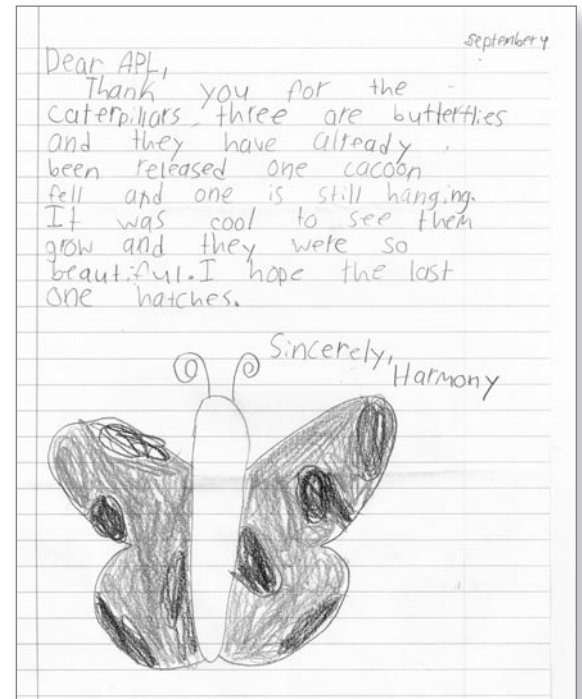 September 4
Dear APL,
Thank you for the
caterpillars three are butterflies
and they have already
been released one cacoon
fell and one is still hanging.
It was cool to see them
grow and they were so
beautiful. I hope the last
one hatches.
Sincerely,
Harmony